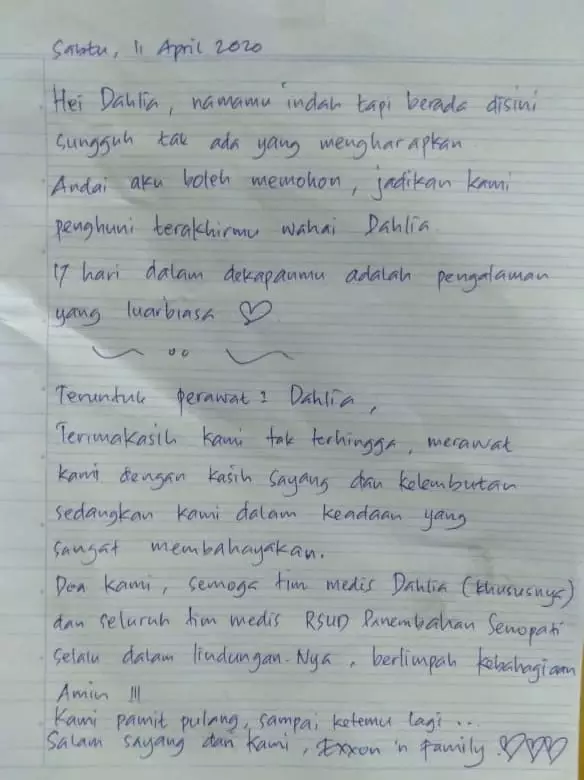 Sabtu, 11 April 2020
Hei Dahlia, namamu indah tapi berada disini
sungguh tak ada yang mengharapkan
Andai aku boleh memohon, jadikan kami
penghuni terakhirmu wahai Dahlia.
17 hari dalam dekapanmu adalah pengalaman
yang luarbiasa ♡
Teruntuk perawat2 Dahlia,
Terimakasih kami tak terhingga, merawat
kami dengan kasih sayang dan kelembutan
sedangkan kami dalam keadaan yang
sangat membahayakan.
Doa kami, semoga tim medis Dahlia (khususnya)
dan seluruh tim medis RSUD Panembahan Senopati
selalu dalam lindungan-Nya, berlimpah kebahagiaan
Amin !!!
Kami pamit pulang, sampai ketemu lagi ...
Salam sayang dari kami, Exxon 'n Family ♡♡♡